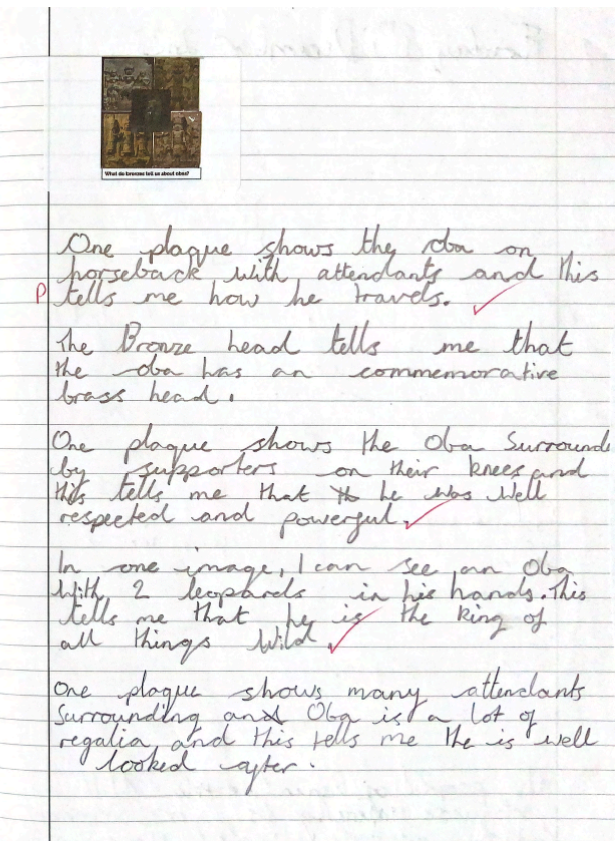 What do bronzes tell us about obas?
One plaque shows the oba on
horseback with attendants and this
P tells me how he travels.
The Bronze head tells me that
the oba has an commemorative
brass head.
One plaque shows the Oba Surround
by supporters on their knees and
this tells me that he was well
respected and powerful.
In one image, I can see an Oba
with 2 leopards in his hands. This
tells me that he is the king of
all things wild.
One plaque shows many attendants
Surrounding an Oba is a lot of
regalia and this tells me the is well
looked after.